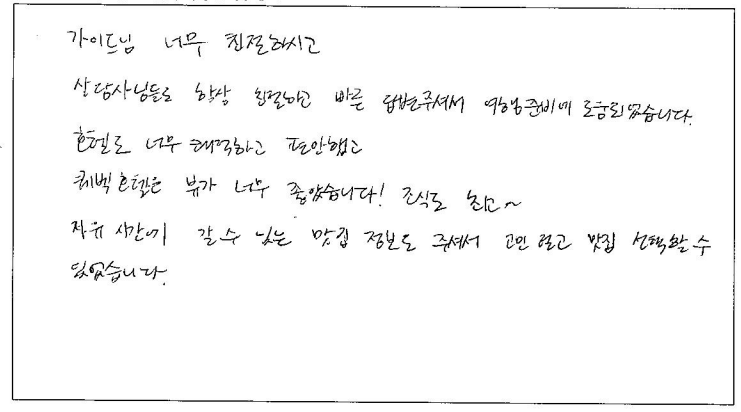 가이드님 너무 친절하시고
상담사님들도 항상 친절하고 빠른 답변주셔서 여행준비에 도움되었습니다.
호텔도 너무 쾌적하고 편안했고
퀘벡호텔은 뷰가 너무 좋았습니다! 조식도 최고~
자유 시간에 갈 수 있는 맛집 정보도 주셔서 고민 않고 맛집 선택할 수
있었습니다.